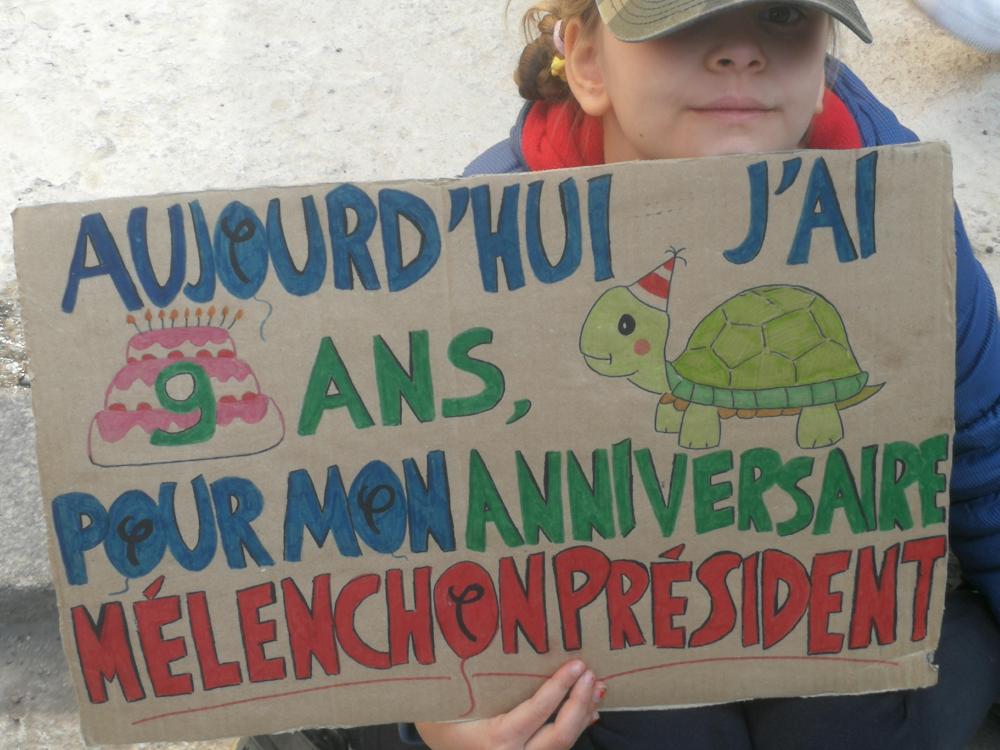 AUJOURD'HUI J'AI
9 ANS,
POUR MON ANNIVERSAIRE
MÉLENCHON PRÉSIDENT